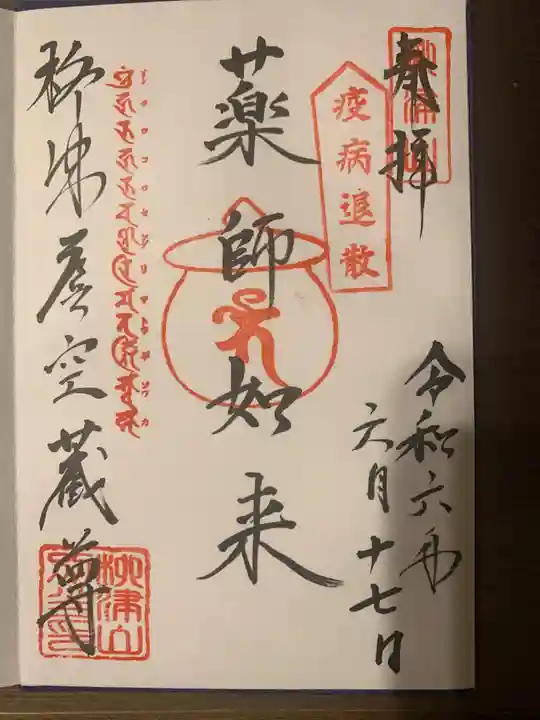 奉拝
疫病退散
令和六年
六月十七日
薬師如来
柳津虚空蔵尊
柳津山